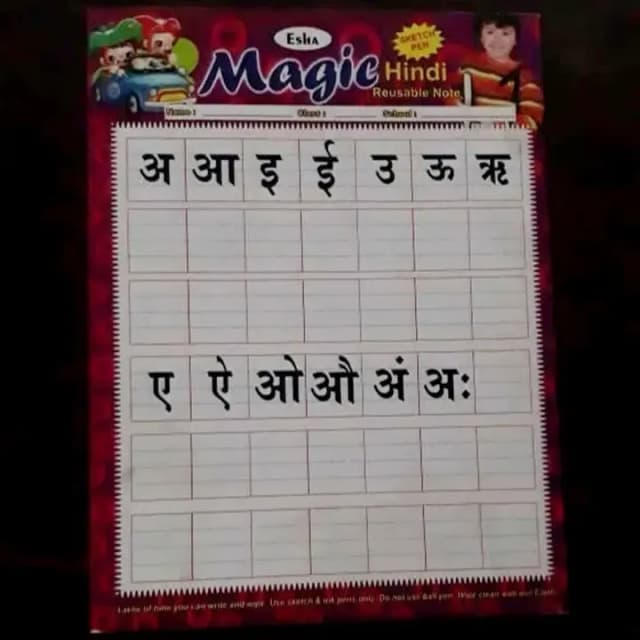 Esha
SKETCH PEN
Magic Hindi
Reusable Note
Name : Class : School :
अ आ इ ई उ ऊ ऋ
ए ऐ ओ औ अं अः
of time you can write and wipe. Use sketch & ink pens only. Do not use Ball pen. Wipe clean with wet